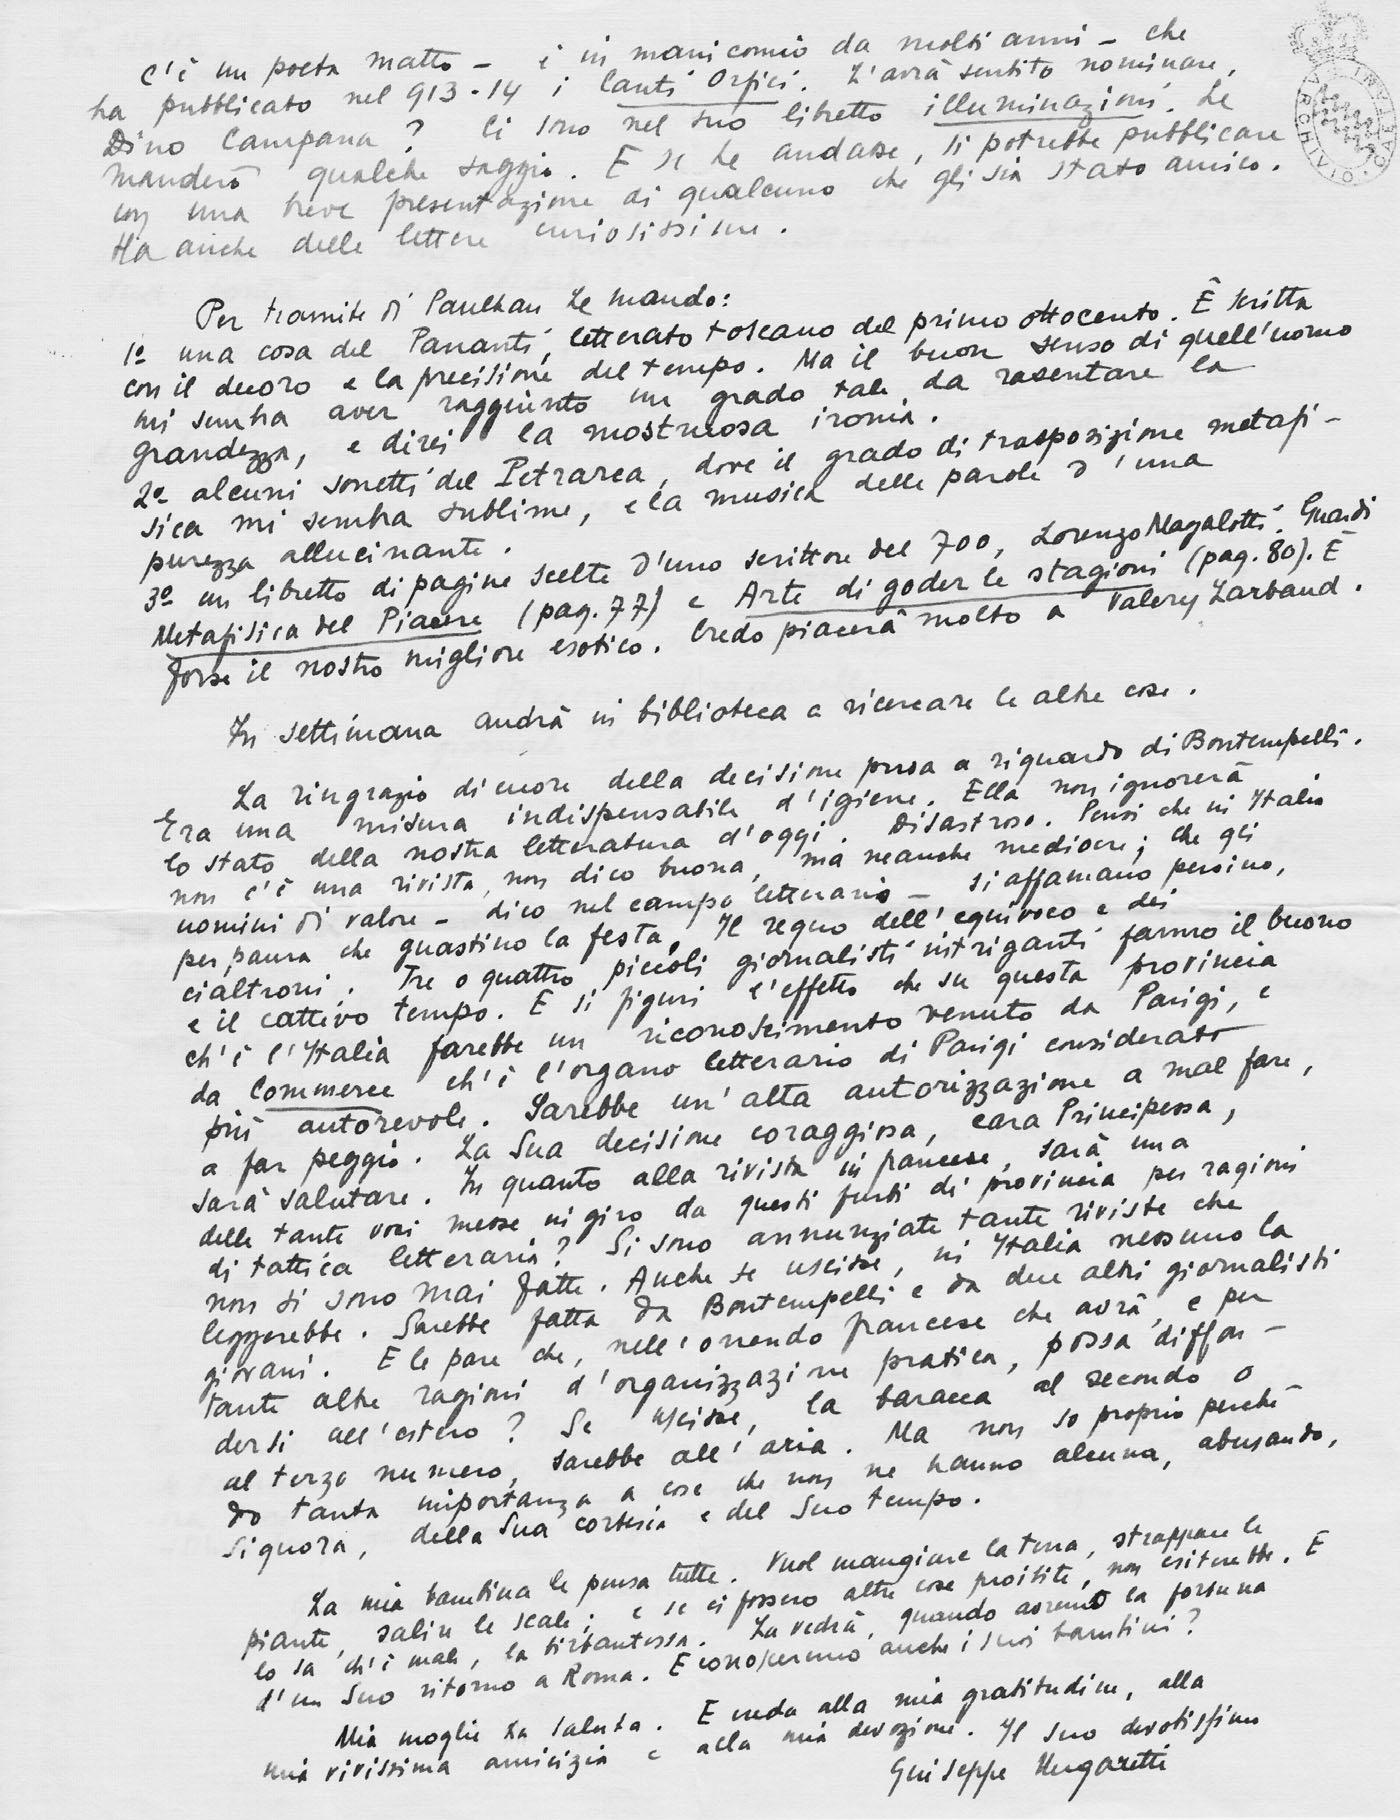 C'è un poeta matto – è in manicomio da molti anni – che
ha pubblicato nel 913-14 i Canti Orfici. L'avrà sentito nominare,
Dino Campana? Ci sono nel suo libretto illuminazioni. Le
manderò qualche saggio. E se Le andasse, si potrebbe pubblicare
con una breve presentazione di qualcuno che gli sia stato amico.
Ha anche delle lettere curiosissime.
ARCHIVIO
CAETANI
Per tramite di Paulhan Le mando:
1º una cosa del Pananti, letterato toscano del primo ottocento. È scritta
con il decoro e la precisione del tempo. Ma il buon senso di quell'uomo
mi sembra aver raggiunto un grado tale da rasentare la
grandezza, e direi la mostruosa ironia.
2º alcuni sonetti del Petrarca, dove il grado di trasposizione metafi-
sica mi sembra sublime, e la musica delle parole d'una
purezza allucinante.
3º un libretto di pagine scelte d'uno scrittore del 700, Lorenzo Magalotti. Guardi
Metafisica del Piacere (pag. 77) e Arte di goder le stagioni (pag. 80). È
forse il nostro migliore esotico. Credo piacerà molto a Valery Larbaud.
In settimana andrò in biblioteca a ricercare le altre cose.
La ringrazio di cuore della decisione presa a riguardo di Bontempelli.
Era una misura indispensabile d'igiene. Ella non ignorerà
lo stato della nostra letteratura d'oggi. Disastroso. Pensi che in Italia
non c'è una rivista, non dico buona, ma neanche mediocre; che gli
uomini di valore – dico nel campo letterario – si affamano persino,
per paura che guastino la festa. Il regno dell'equivoco e dei
cialtroni. Tre o quattro piccoli giornalisti intriganti fanno il buono
e il cattivo tempo. E si figuri l'effetto che su questa provincia
ch'è l'Italia farebbe un riconoscimento venuto da Parigi, e
da Commerce ch'è l'organo letterario di Parigi considerato
più autorevole. Sarebbe un'alta autorizzazione a mal fare,
a far peggio. La Sua decisione coraggiosa, cara Principessa,
sarà salutare. In quanto alla rivista in francese, sarà una
delle tante voci messe in giro da questi furbi di provincia per ragioni
di tattica letteraria? Si sono annunziate tante riviste che
non si sono mai fatte. Anche se uscisse, in Italia nessuno la
leggerebbe. Sarebbe fatta da Bontempelli e da due altri giornalisti
giovani. E le pare che, nell'orrendo francese che avrà, e per
tante altre ragioni d'organizzazione pratica, possa diffon-
dersi all'estero? Se uscisse, la baracca al secondo o
al terzo numero, sarebbe all'aria. Ma non so proprio perché
do tanta importanza a cose che non ne hanno alcuna, abusando,
Signora, della Sua cortesia e del Suo tempo.
La mia bambina le pensa tutte. Vuol mangiare la terra, strappare le
piante, salire le scale; e se ci fossero altre cose proibite, non esiterebbe. E
lo sa ch'è male, la birbantessa. La vedrà, quando avremo la fortuna
d'un Suo ritorno a Roma. E conosceremo anche i suoi bambini?
Mia moglie La saluta. E creda alla mia gratitudine, alla
mia vivissima amicizia e alla mia devozione. Il Suo devotissimo
Giuseppe Ungaretti